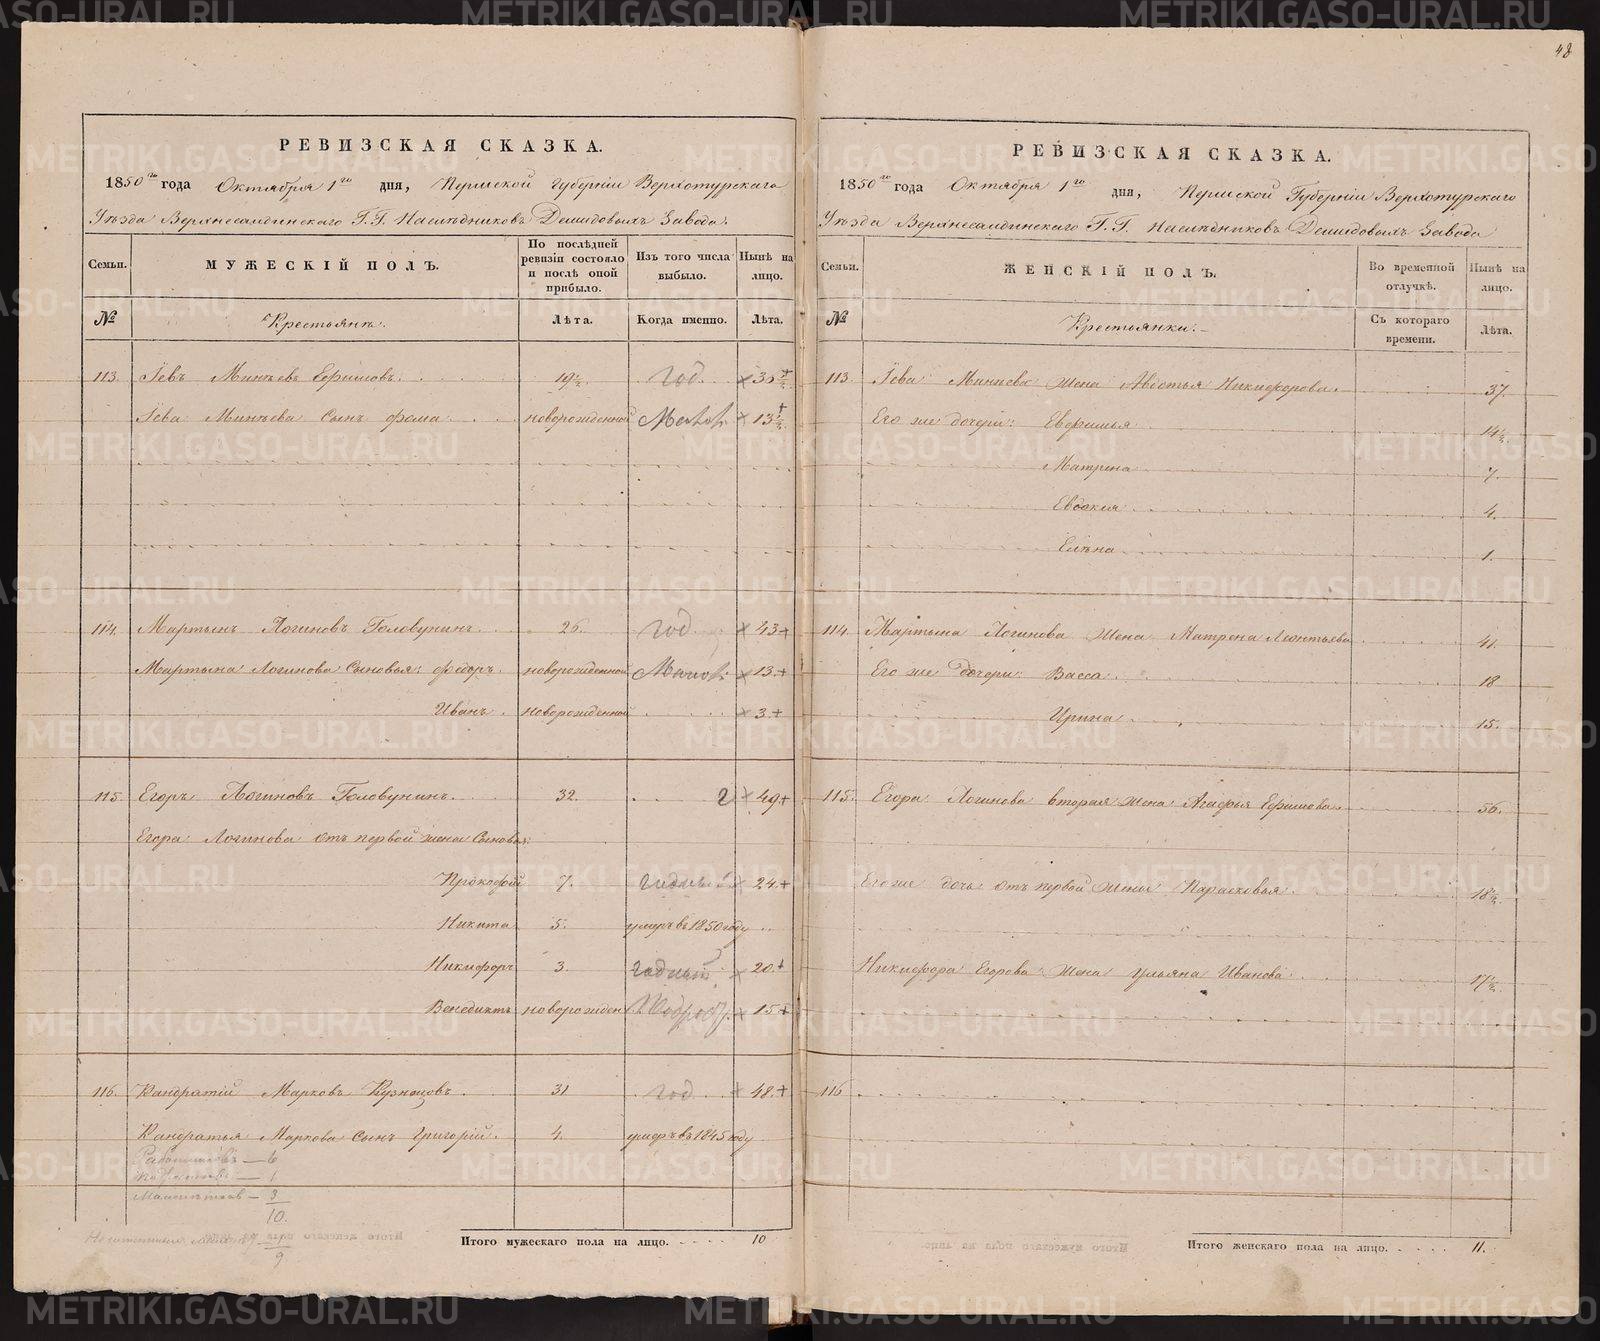 48
РЕВИЗСКАЯ СКАЗКА.
1850го года Октября 1го дня, Пермской губерніи Верхотурскаго
Уѣзда Верхнесалдинскаго Г.Г. Наслѣдниковъ Демидовыхъ Завода.
Семьи. МУЖЕСКІЙ ПОЛЪ. По послѣдней ревизіи состояло и послѣ оной прибыло. Изъ того числа выбыло. Нынѣ на лицо.
№ Крестьянъ: Лѣта. Когда именно. Лѣта.
113. Минѣевъ Ефимовъ. 19½ год 36½
Минѣева Сынъ Фома новорожденной 13½
114. Мартынъ Логиновъ Головунинъ 26. год 43
Мартына Логинова Сыновья: Федоръ новорожденной 13.
Иванъ новорожденной 3.
115. Егоръ Логиновъ Головунинъ 32. 49
Егора Логинова отъ первой жены Сыновья:
Прокофій 7. годный 24.
Никита 5. умеръ въ 1850 году
Никифоръ 3. годный 20
Венедиктъ новорожден 15
116. Кандратій Марковъ Кузнецовъ 31 год 48.
Кандратья Маркова Сынъ Григорій. 4. умеръ въ 1845 году
Работниковъ — 6
— 1
Малолѣтков — 3
10.
9
Итого мужескаго пола на лицо. 10
РЕВИЗСКАЯ СКАЗКА.
1850го года Октября 1го дня, Пермской Губерніи Верхотурскаго
Уѣзда Верхнесалдинскаго Г.Г. Наслѣдниковъ Демидовыхъ Завода
Семьи. ЖЕНСКІЙ ПОЛЪ. Во временной отлучкѣ. Нынѣ на лицо.
№ Крестьянки: Съ котораго времени. Лѣта.
113. Минѣева жена Авдотья Никифорова. 37.
Его же дочери: Евфимья 14½
Матрена 7.
Евдокия 4.
Елѣна 1.
114. Мартына Логинова жена Матрена Леонтьева 41.
Его же дочери: Васса 18
Ирина 15.
115. Егора Логинова вторая жена Агафья Ефимова 56.
Его же дочь отъ первой жены Парасковья 18½
Никифора Егорова жена Ульяна Иванова 17½
116
Итого женскаго пола на лицо. 11.
METRIKI.GASO-URAL.RU